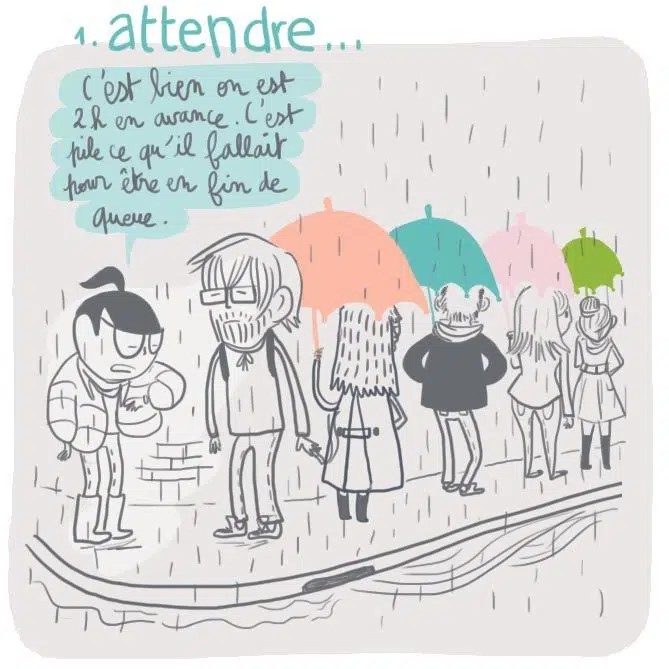 1. attendre...
C'est bien on est
2h en avance. C'est
pile ce qu'il fallait
pour être en fin de
queue.